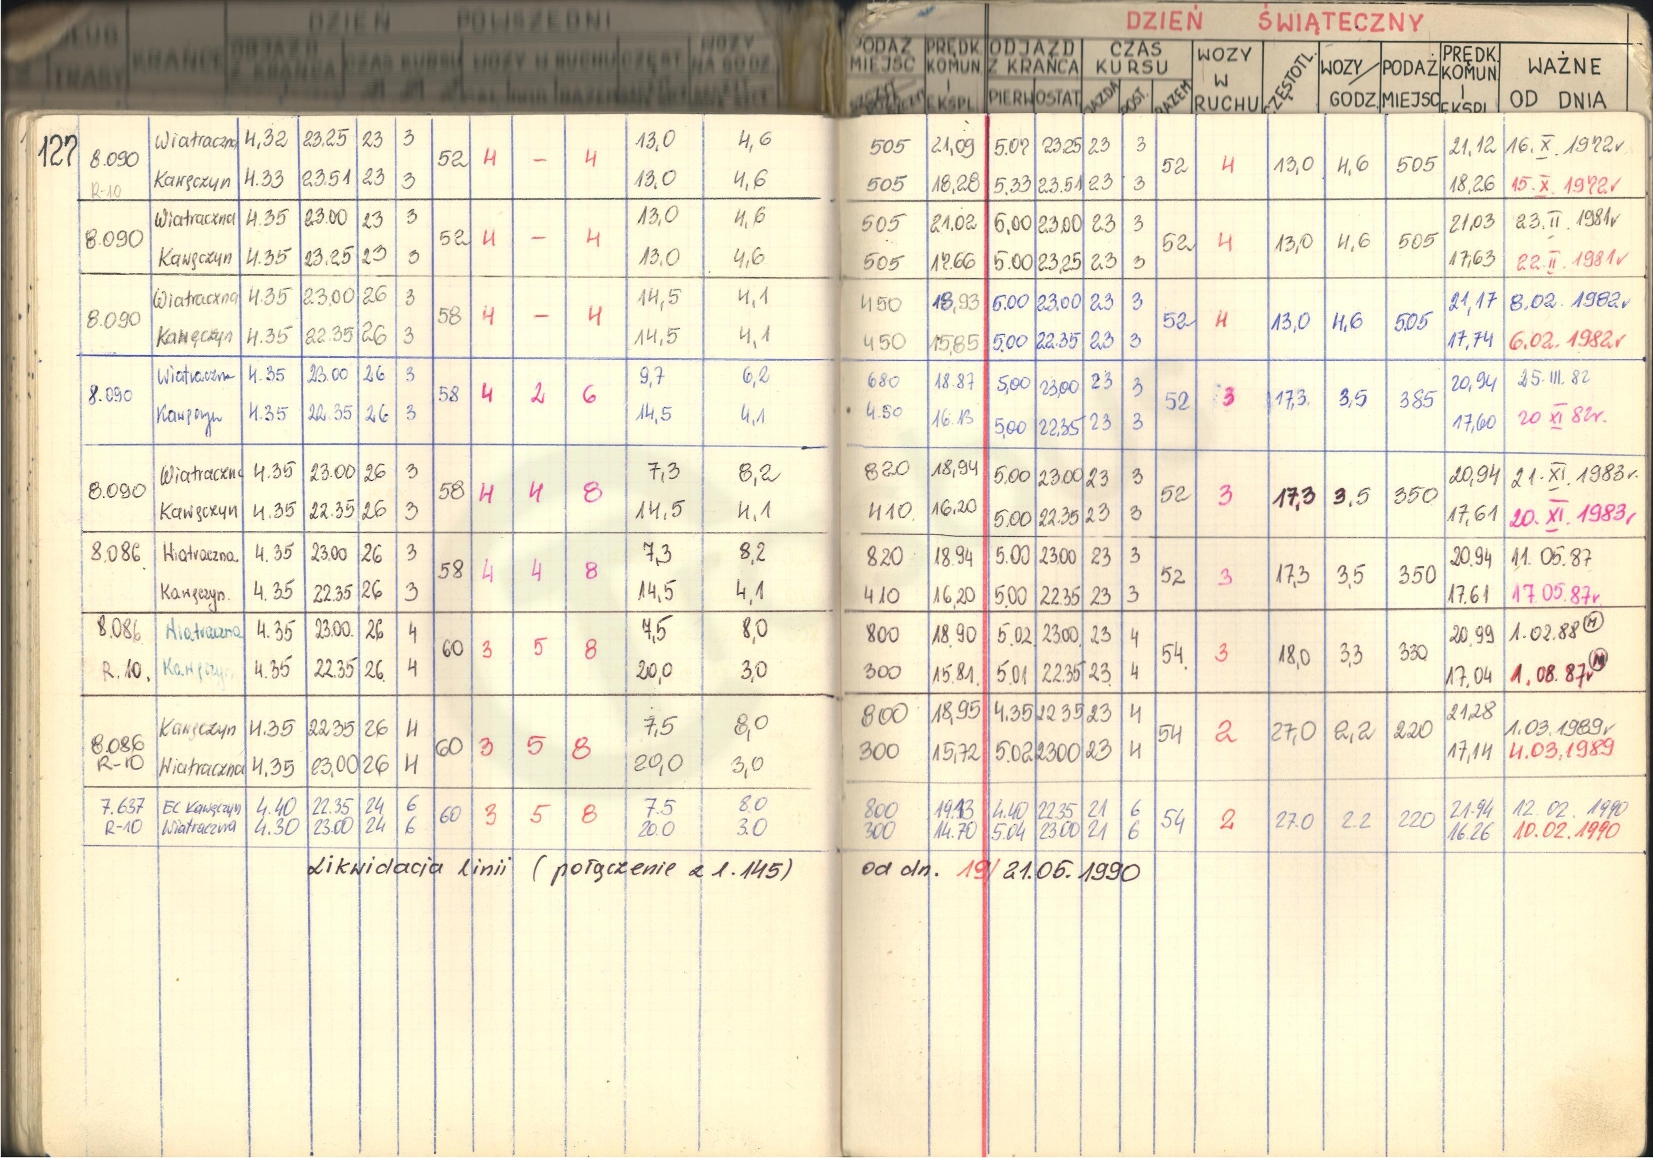 DZIEŃ POWSZEDNI DZIEŃ ŚWIĄTECZNY
DŁUG. TRASY KRAŃCE ODJAZD Z KRAŃCA CZAS KURSU WOZY W RUCHU CZĘST. WOZY NA GODZ. PODAŻ MIEJSC PRĘDK. KOMUN. I EKSPL. ODJAZD Z KRAŃCA PIERW OSTAT. CZAS KURSU JAZDA POST. RAZEM WOZY W RUCHU CZĘSTOTL. WOZY/GODZ. PODAŻ MIEJSC PRĘDK. KOMUN. I EKSPL. WAŻNE OD DNIA
127 8.090 Wiatraczna 4,32 23.25 23 3 52 4 – 4 13,0 4,6 505 21,09 5.07 23.25 23 3 52 4 13,0 4,6 505 21,12 16.X.1972r
R-10 Kawęczyn 4.33 23.51 23 3 13,0 4,6 505 18,28 5.33 23.51 23 3 18,26 15.X.1972r
8.090 Wiatraczna 4.35 23.00 23 3 52 4 – 4 13,0 4,6 505 21.02 5,00 23.00 23 3 52 4 13,0 4,6 505 21,03 23.II.1981r
Kawęczyn 4.35 23.25 23 3 13.0 4,6 505 17.66 5.00 23,25 23 3 17,63 22.II.1981r
8.090 Wiatraczna 4.35 23.00 26 3 58 4 – 4 14,5 4,1 450 18,93 5.00 23.00 23 3 52 4 13,0 4,6 505 21,17 8.02.1982r
Kawęczyn 4.35 22.35 26 3 14,5 4,1 450 15,85 5.00 22.35 23 3 17,74 6.02.1982r
8.090 Wiatraczna 4.35 23.00 26 3 58 4 2 6 9,7 6,2 680 18.87 5,00 23,00 23 3 52 3 17,3 3,5 385 20,94 25.III.82
Kawęczyn 4.35 22.35 26 3 14,5 4,1 4.50 16.13 5,00 22,35 23 3 17,60 20 XI 82r.
8.090 Wiatraczna 4.35 23.00 26 3 58 4 4 8 7,3 8,2 820 18,94 5.00 23.00 23 3 52 3 17,3 3,5 350 20,94 21.XI.1983r.
Kawęczyn 4.35 22.35 26 3 14,5 4,1 410 16,20 5.00 22.35 23 3 17,61 20.XI.1983r
8.086 Wiatraczna 4.35 23.00 26 3 58 4 4 8 7,3 8,2 820 18.94 5.00 23.00 23 3 52 3 17,3 3,5 350 20.94 11.05.87
Kawęczyn. 4.35 22.35 26 3 14,5 4,1 410 16,20 5.00 22.35 23 3 17.61 17.05.87r
8.086 Wiatraczna 4.35 23.00. 26 4 60 3 5 8 7,5 8,0 800 18.90 5.02 23.00 23 4 54. 3 18,0 3,3 330 20,99 1.02.88 M
R.10. Kawęczyn 4.35 22.35 26 4 20,0 3,0 300 15.81. 5.01 22.35 23 4 17,04 1.08.87r M
8.086 Kawęczyn 4.35 22.35 26 4 60 3 5 8 7,5 8,0 800 18,95 4.35 22.35 23 4 54 2 27,0 2,2 220 21,28 1.03.1989r
R-10 Wiatraczna 4.35 23,00 26 4 20,0 3,0 300 15,72 5.02 23.00 23 4 17,14 4.03.1989
7.637 EC Kawęczyn 4.40 22.35 24 6 60 3 5 8 7.5 8.0 800 19.13 4.40 22.35 21 6 54 2 27.0 2.2 220 21.94 12.02.1990
R-10 Wiatraczna 4.30 23.00 24 6 20.0 3.0 300 14.70 5.04 23.00 21 6 16.26 10.02.1990
Likwidacja linii (połączenie z l.145) od dn. 19/21.05.1990